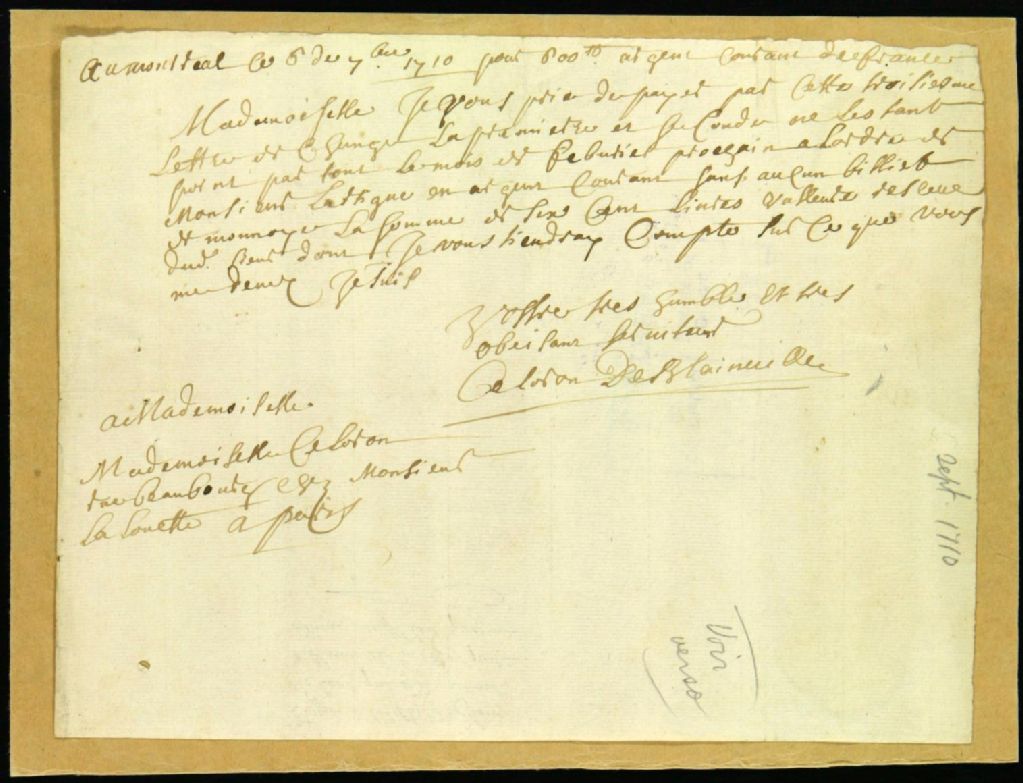 Au montreal ce 6 de 7bre 1710 pour 600lt argent Courant de france
Mademoiselle Je vous prie de payer par Cette troisiesme
Lettre de Change La premiere et seConde ne Lestant
point par tout Le mois de feburier prochain a Lordre de
Monsieur Lestage en argent Courant sans auCun billiet
de monnoye La somme de six Cent Liures valleure reseue
dud. sieur dont Je vous tiendray Compte sur Ce que vous
me deuez Je suis
Vostre tres humble et tres
obeisant seruiteur
Celoron DeBlainuille
a Mademoiselle
Mademoiselle Celoron
rue beaubourg chez Monsieur
La Louette a paris
sept. 1710
Voir
verso